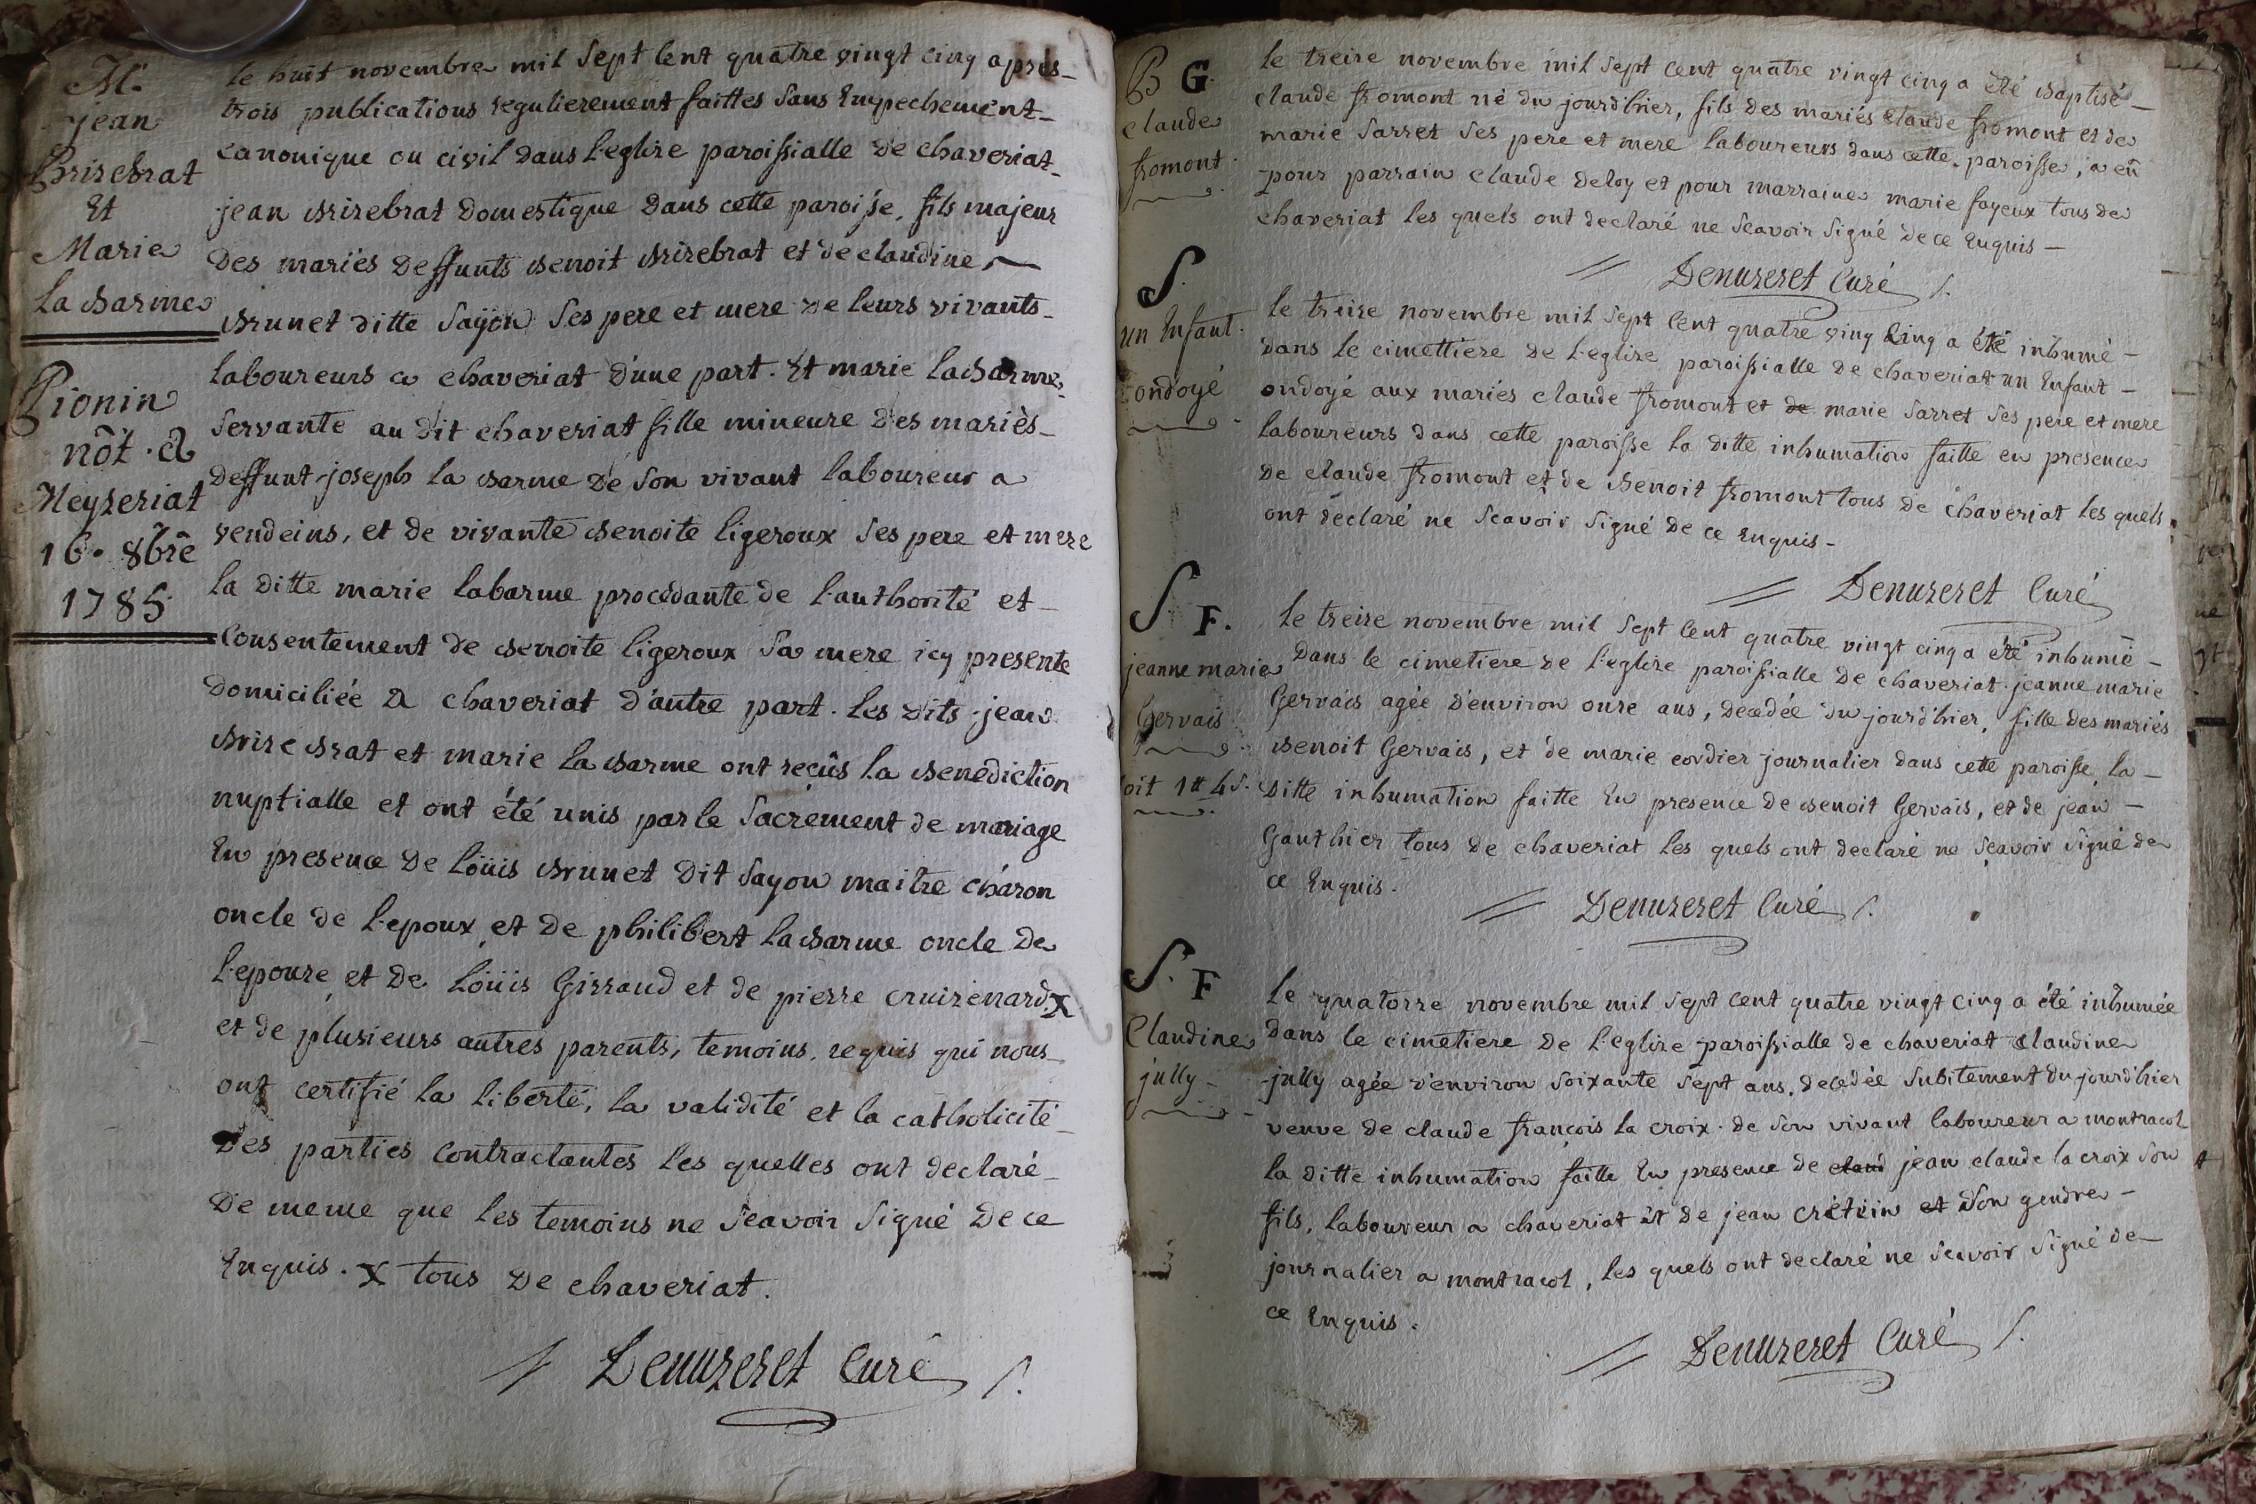 M.
jean
Brisebrat
Et
Marie
la barme
Pionin
nōt. a
Meyzeriat
16. 8bre
1785
le huit novembre mil sept cent quatre vingt cinq apres
trois publications regulierement faittes sans Empechement
canonique ou civil dans l'eglize paroissialle de chaveriat
jean brizebrat domestique dans cette paroisse, fils majeur
des mariés deffunts benoit brizebrat et de claudine
brunet ditte sayon ses pere et mere de leurs vivants
laboureurs a chaveriat d'une part. Et marie la barme,
servante au dit chaveriat fille mineure des mariès
deffunt joseph la barme de son vivant laboureur a
vendeins, et de vivante benoite ligeroux ses pere et mere
la ditte marie labarme procédante de l'authorité et
consentement de benoite ligeroux sa mere icy presente
domiciliée a chaveriat d'autre part. les dits jean
brize brat et marie la barme ont reçûs la benediction
nuptialle et ont été unis par le sacrement de mariage
En presence de loüis brunet dit sayon maitre charon
oncle de l'epoux, et de philibert la barme oncle de
l'epouze, et de loüis Girraud et de pierre cruizenard, X
et de plusieurs autres parents, temoins, requis qui nous
ont certifié la liberté, la validité et la catholicité
des parties contractantes les quelles ont declaré
de meme que les temoins ne sçavoir signé de ce
Enquis. X tous de chaveriat.
Denuzeret Curé
B G.
claude
fromont.
le treize novembre mil sept cent quatre vingt cinq a été baptisé
claude fromont né du jourd'hier, fils des mariés claude fromont et de
marie sarret ses pere et mere laboureurs dans cette paroisse, a eû
pour parrain claude deloy et pour marraine marie fayeux tous de
chaveriat les quels ont declaré ne sçavoir signé de ce Enquis
Denuzeret Curé
S.
un Enfant
ondoyé
le treize novembre mil sept cent quatre ving cinq a été inhumé
dans le cimettiere de l'eglize paroissialle de chaveriat un Enfant
ondoyé aux mariés claude fromont et de marie sarret ses pere et mere
laboureurs dans cette paroisse la ditte inhumation faitte en presence
de claude fromont et de benoit fromont tous de chaveriat les quels
ont declaré ne sçavoir signé de ce Enquis
Denuzeret Curé
S. F.
jeanne marie
Gervais
oit 1tt 4s.
le treize novembre mil sept cent quatre vingt cinq a été inhumé
dans le cimetiere de l'eglize paroissialle de chaveriat jeanne marie
Gervais agée d'environ onze ans, decedée du jourd'hier, fille des mariés
benoit Gervais, et de marie cordier journalier dans cette paroisse, la
ditte inhumation faitte En presence de benoit Gervais, et de jean
Gauthier tous de chaveriat les quels ont declaré ne sçavoir signé de
ce Enquis.
Denuzeret Curé
S. F
Claudine
jully
le quatorze novembre mil sept cent quatre vingt cinq a été inhumée
dans le cimetiere de l'eglize paroissialle de chaveriat claudine
jully agée d'environ soixante sept ans, decedée subitement du jourd'hier
veuve de claude françois la croix de son vivant laboureur a montracol
la ditte inhumation faitte En presence de claud jean claude la croix son
fils, laboureur a chaveriat et de jean crétin et son gendre
journalier a montracol, les quels ont declaré ne scavoir signé de
ce Enquis.
Denuzeret Curé